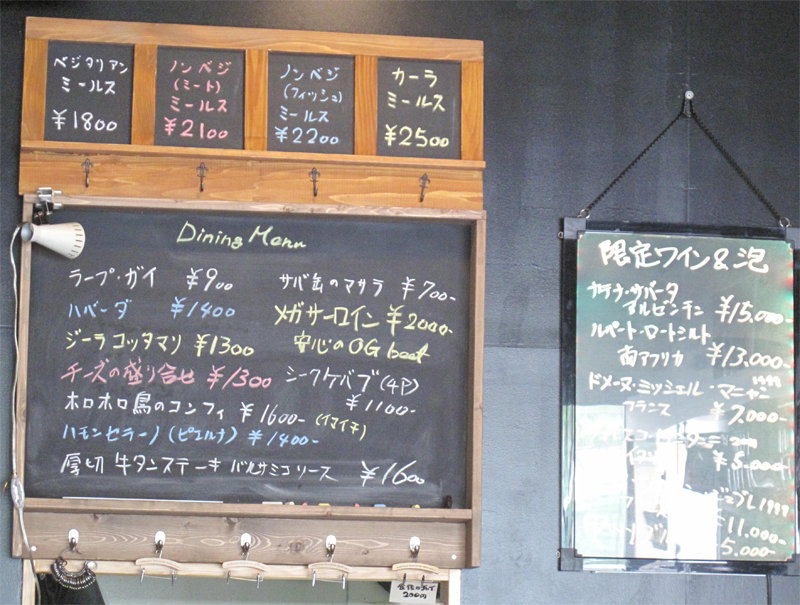 ベジタリアン
ミールス
¥1800
ノンベジ
(ミート)
ミールス
¥2100
ノンベジ
(フィッシュ)
ミールス
¥2200
カーラ
ミールス
¥2500
Dining Menu
ラープ・ガイ ¥900
ハバーダ ¥1400
ジーラ コッタマリ ¥1300
チーズの盛り合せ ¥1300
ホロホロ鳥のコンフィ ¥1600- (イマイチ)
ハモンセラーノ ¥1400-
厚切 牛タンステーキ バルサミコソース ¥1600
サバ缶のマサラ ¥700-
メガサーロイン ¥2000-
安心のOG beef
シークケバブ(4P)
¥1100-
限定ワイン&泡
カテナ・サパータ
アルゼンチン ¥15.000-
ルパート・ロートシルト
南アフリカ ¥13.000-
ドメーヌ・ミッシェル・マニャン
フランス ¥7.000-
¥5.000-
11.000-
5.000-
200円